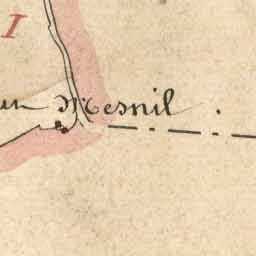 I
un Mesnil.